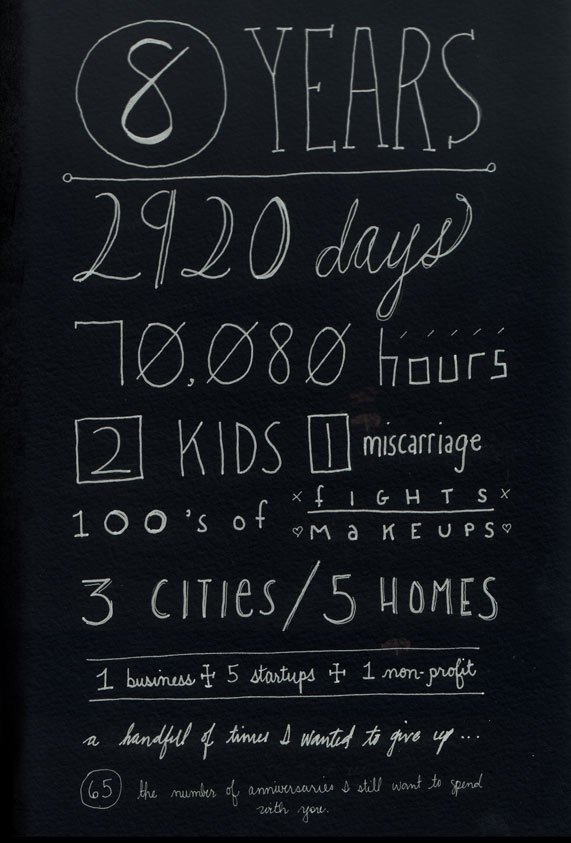 8 YEARS
2920 days
70,080 hours
2 KIDS 1 miscarriage
100's of x fIGHTS x
♡ MaKEUPS ♡
3 CITIes/5 HOMES
1 business + 5 startups + 1 non-profit
a handful of times I wanted to give up...
65 the number of anniversaries I still want to spend
with you.